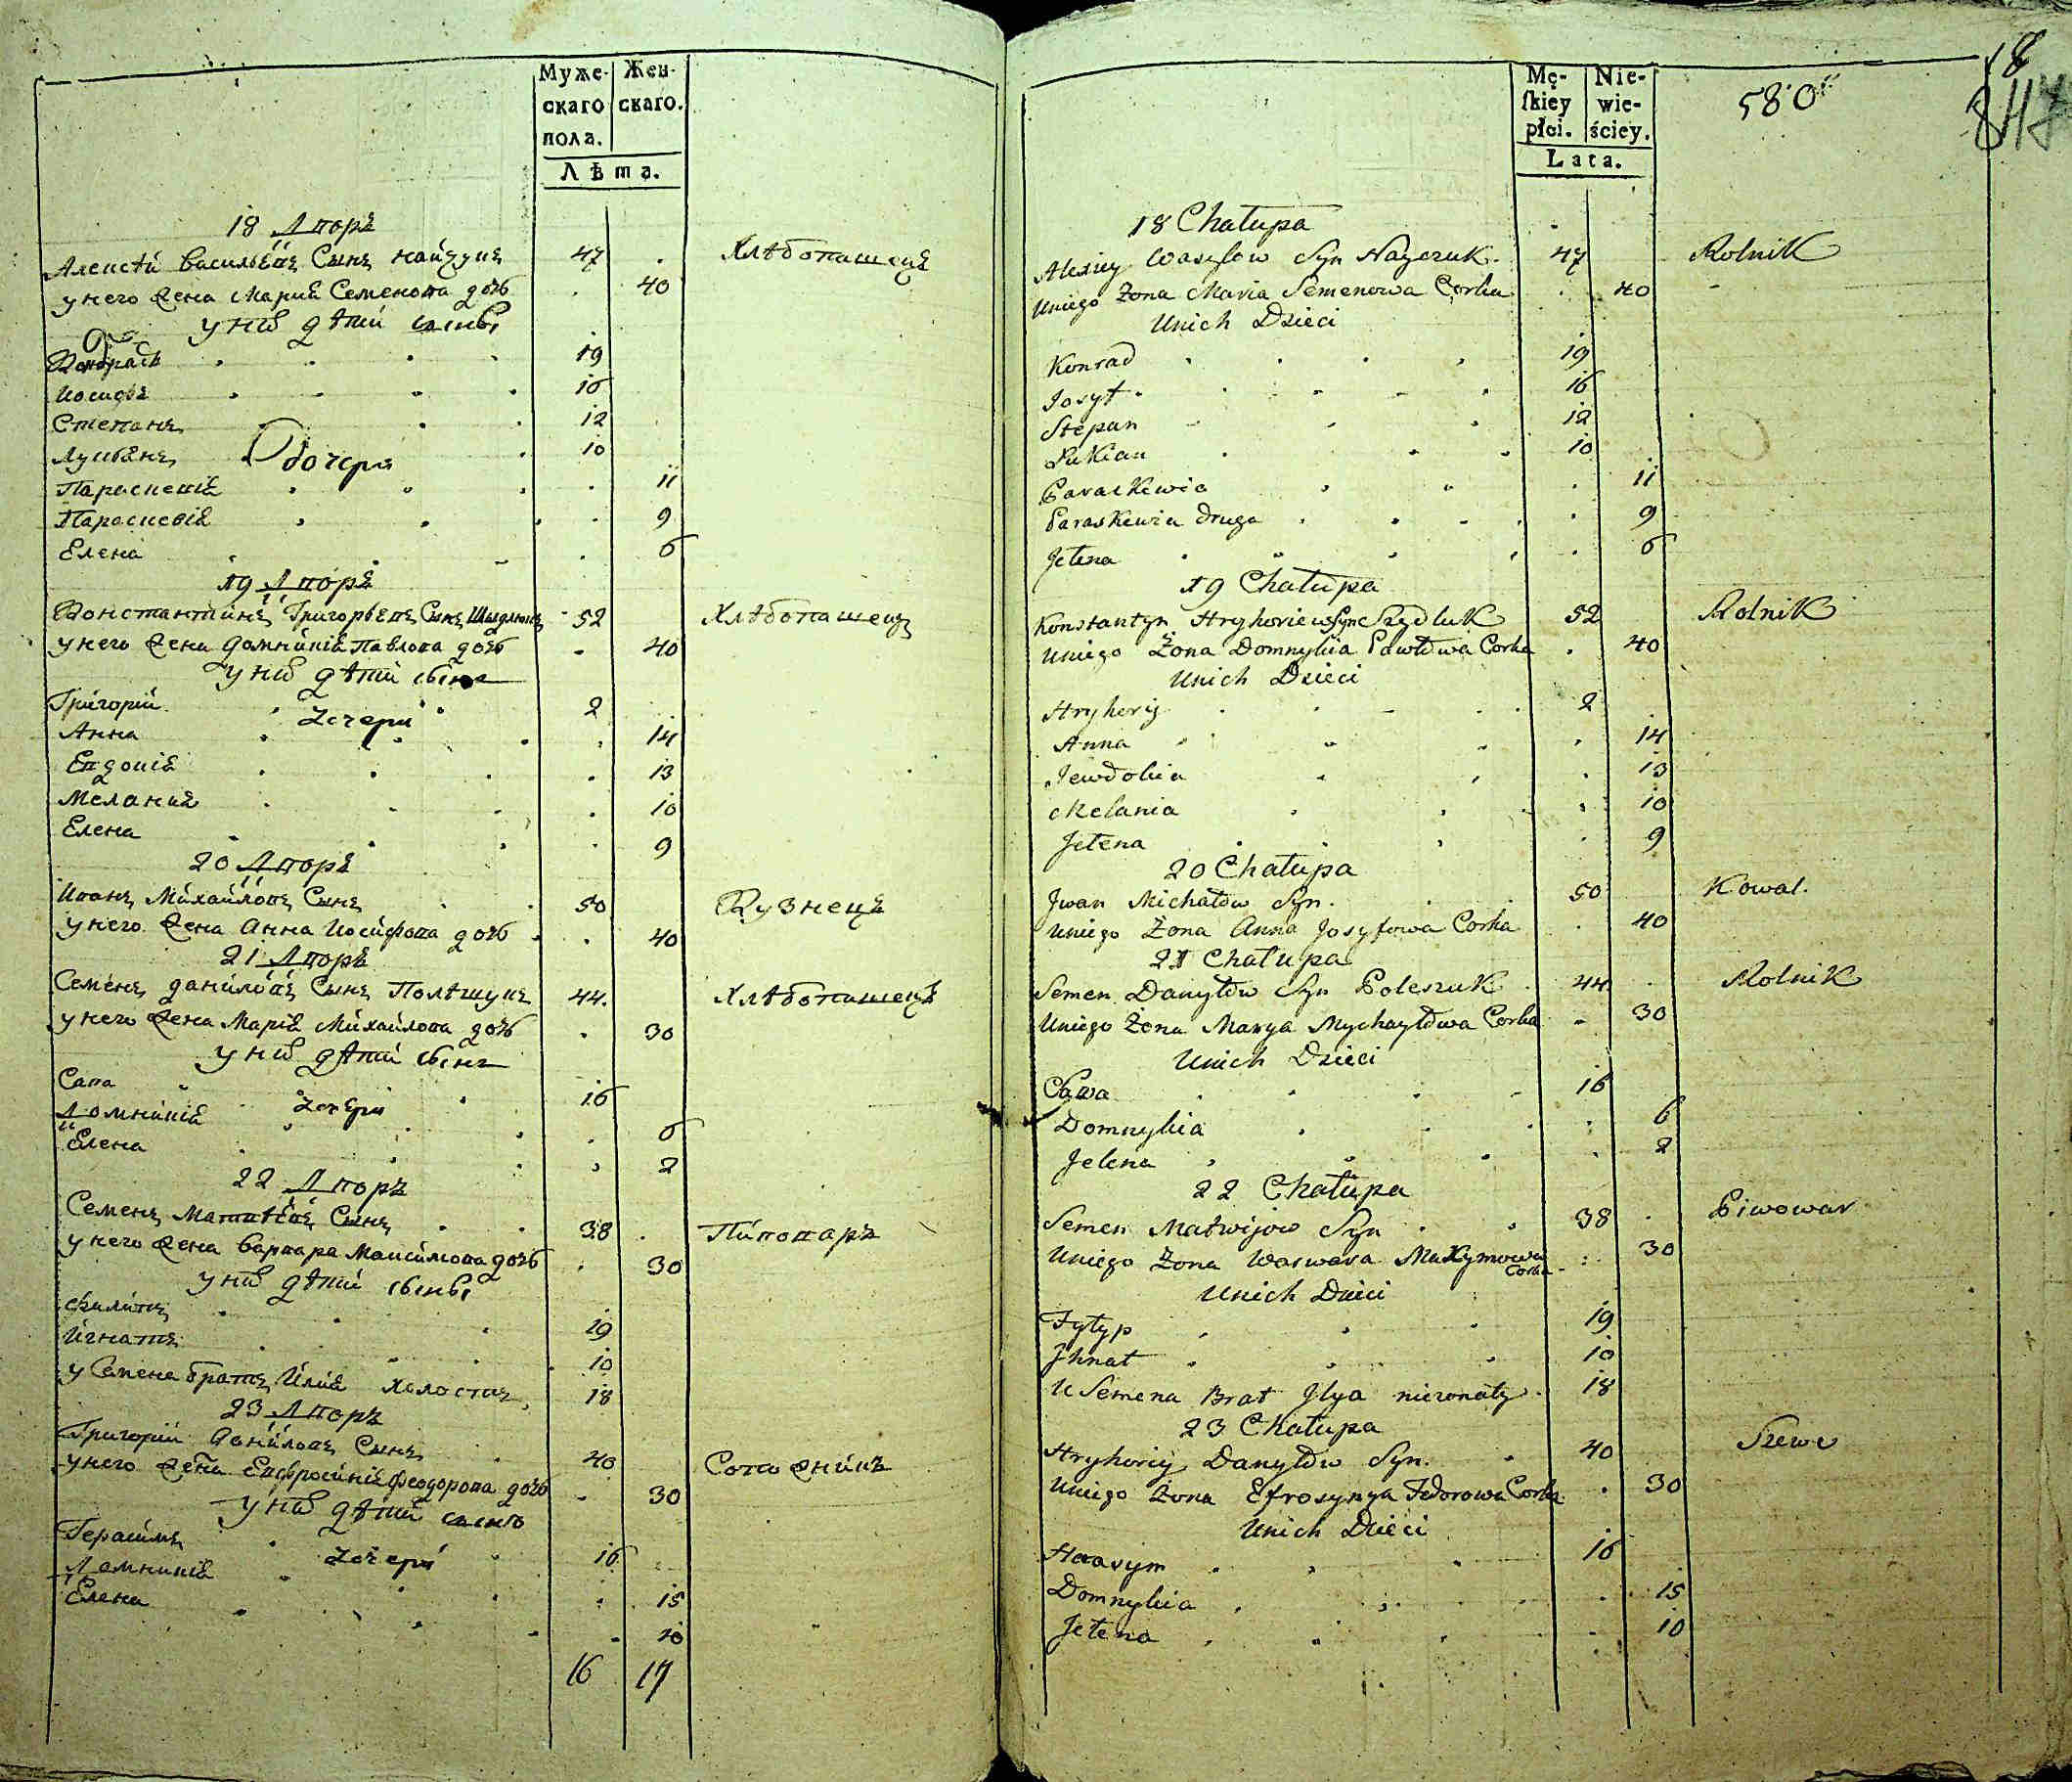 Муже-
скаго
пола.
Жен-
скаго.
Лѣта.
18 Дворъ
Алексѣй Васильевъ Сынъ Найчукъ 47 Хлѣбопашецъ
у него жена Марія Семенова дочь 40
у нихъ дѣти сыны
19
Іосифъ 16
Степанъ 12
Лукіянъ 10
дочери
Параскевія 11
Параскевія 9
Елена 6
19 Дворъ
Константинъ Григорьевъ Сынъ Шидлюкъ 52 Хлѣбопашецъ
у него жена Домникія Павлова дочь 40
у нихъ дѣти сынъ
Григорій 2
дочери
Анна 14
Евдокія 13
Меланія 10
Елена 9
20 Дворъ
Иванъ Михайловъ Сынъ 50 Кузнецъ
у него жена Анна Іосифова дочь 40
21 Дворъ
Семенъ Даниловъ Сынъ Полѣщукъ 44. Хлѣбопашецъ
у него жена Марія Михайлова дочь 30
у нихъ дѣти сынъ
Сава 16
дочери
Домникія 6
Елена 2
22 Дворъ
Семенъ Матвѣевъ Сынъ 38 Пивоваръ
у него жена Варвара Максимова дочь 30
у нихъ дѣти сыны
Филипъ 19
Игнатъ 10
у Семена братъ Илія холостъ 18
23 Дворъ
Григорій Даниловъ Сынъ 40 Сапожникъ
у него жена Евфросинія Феодорова дочь 30
у нихъ дѣти сынъ
Герасимъ 16
дочери
Домникія 15
Елена 10
16 17
18
580
Mę-
skiey
płci.
Nie-
wie-
ściey.
Lata.
18 Chałupa
Alexiey Wasylow Syn Nayczuk. 47 Rolnik
Uniego Żona Maria Semenowa Corka 40
Unich Dzieci
Konrad 19
Josyf 16
Stepan 12
Łukian 10
Paraskewia 11
Paraskewia druga 9
Jełena 6
19 Chałupa
Konstantyn Hryhoriew Syn Szydluk 52 Rolnik
Uniego Żona Domnykia Pawłowa Corka 40
Unich Dzieci
Hryhoriy 2
Anna 14
Jewdokia 13
Melania 10
Jełena 9
20 Chałupa
Jwan Michałow Syn. 50 Kowal.
Uniego Żona Anna Josyfowa Corka 40
21 Chałupa
Semen Danyłow Syn Poleszuk 44 Rolnik
Uniego Żona Marya Mychayłowa Corka 30
Unich Dzieci
Sawa 16
Domnykia 6
Jelena 2
22 Chałupa
Semen Matwijow Syn 38 Piwowar
Uniego Żona Warwara Maxymowa Corka 30
Unich Dzieci
Fyłyp 19
Jhnat 10
U Semena Brat Jlya nieżonaty 18
23 Chałupa
Hryhoriy Danyłow Syn. 40 Szewc
Uniego Żona Efrosynya Fedorowa Corka 30
Unich Dzieci
Harasym 16
Domnykia 15
Jełena 10